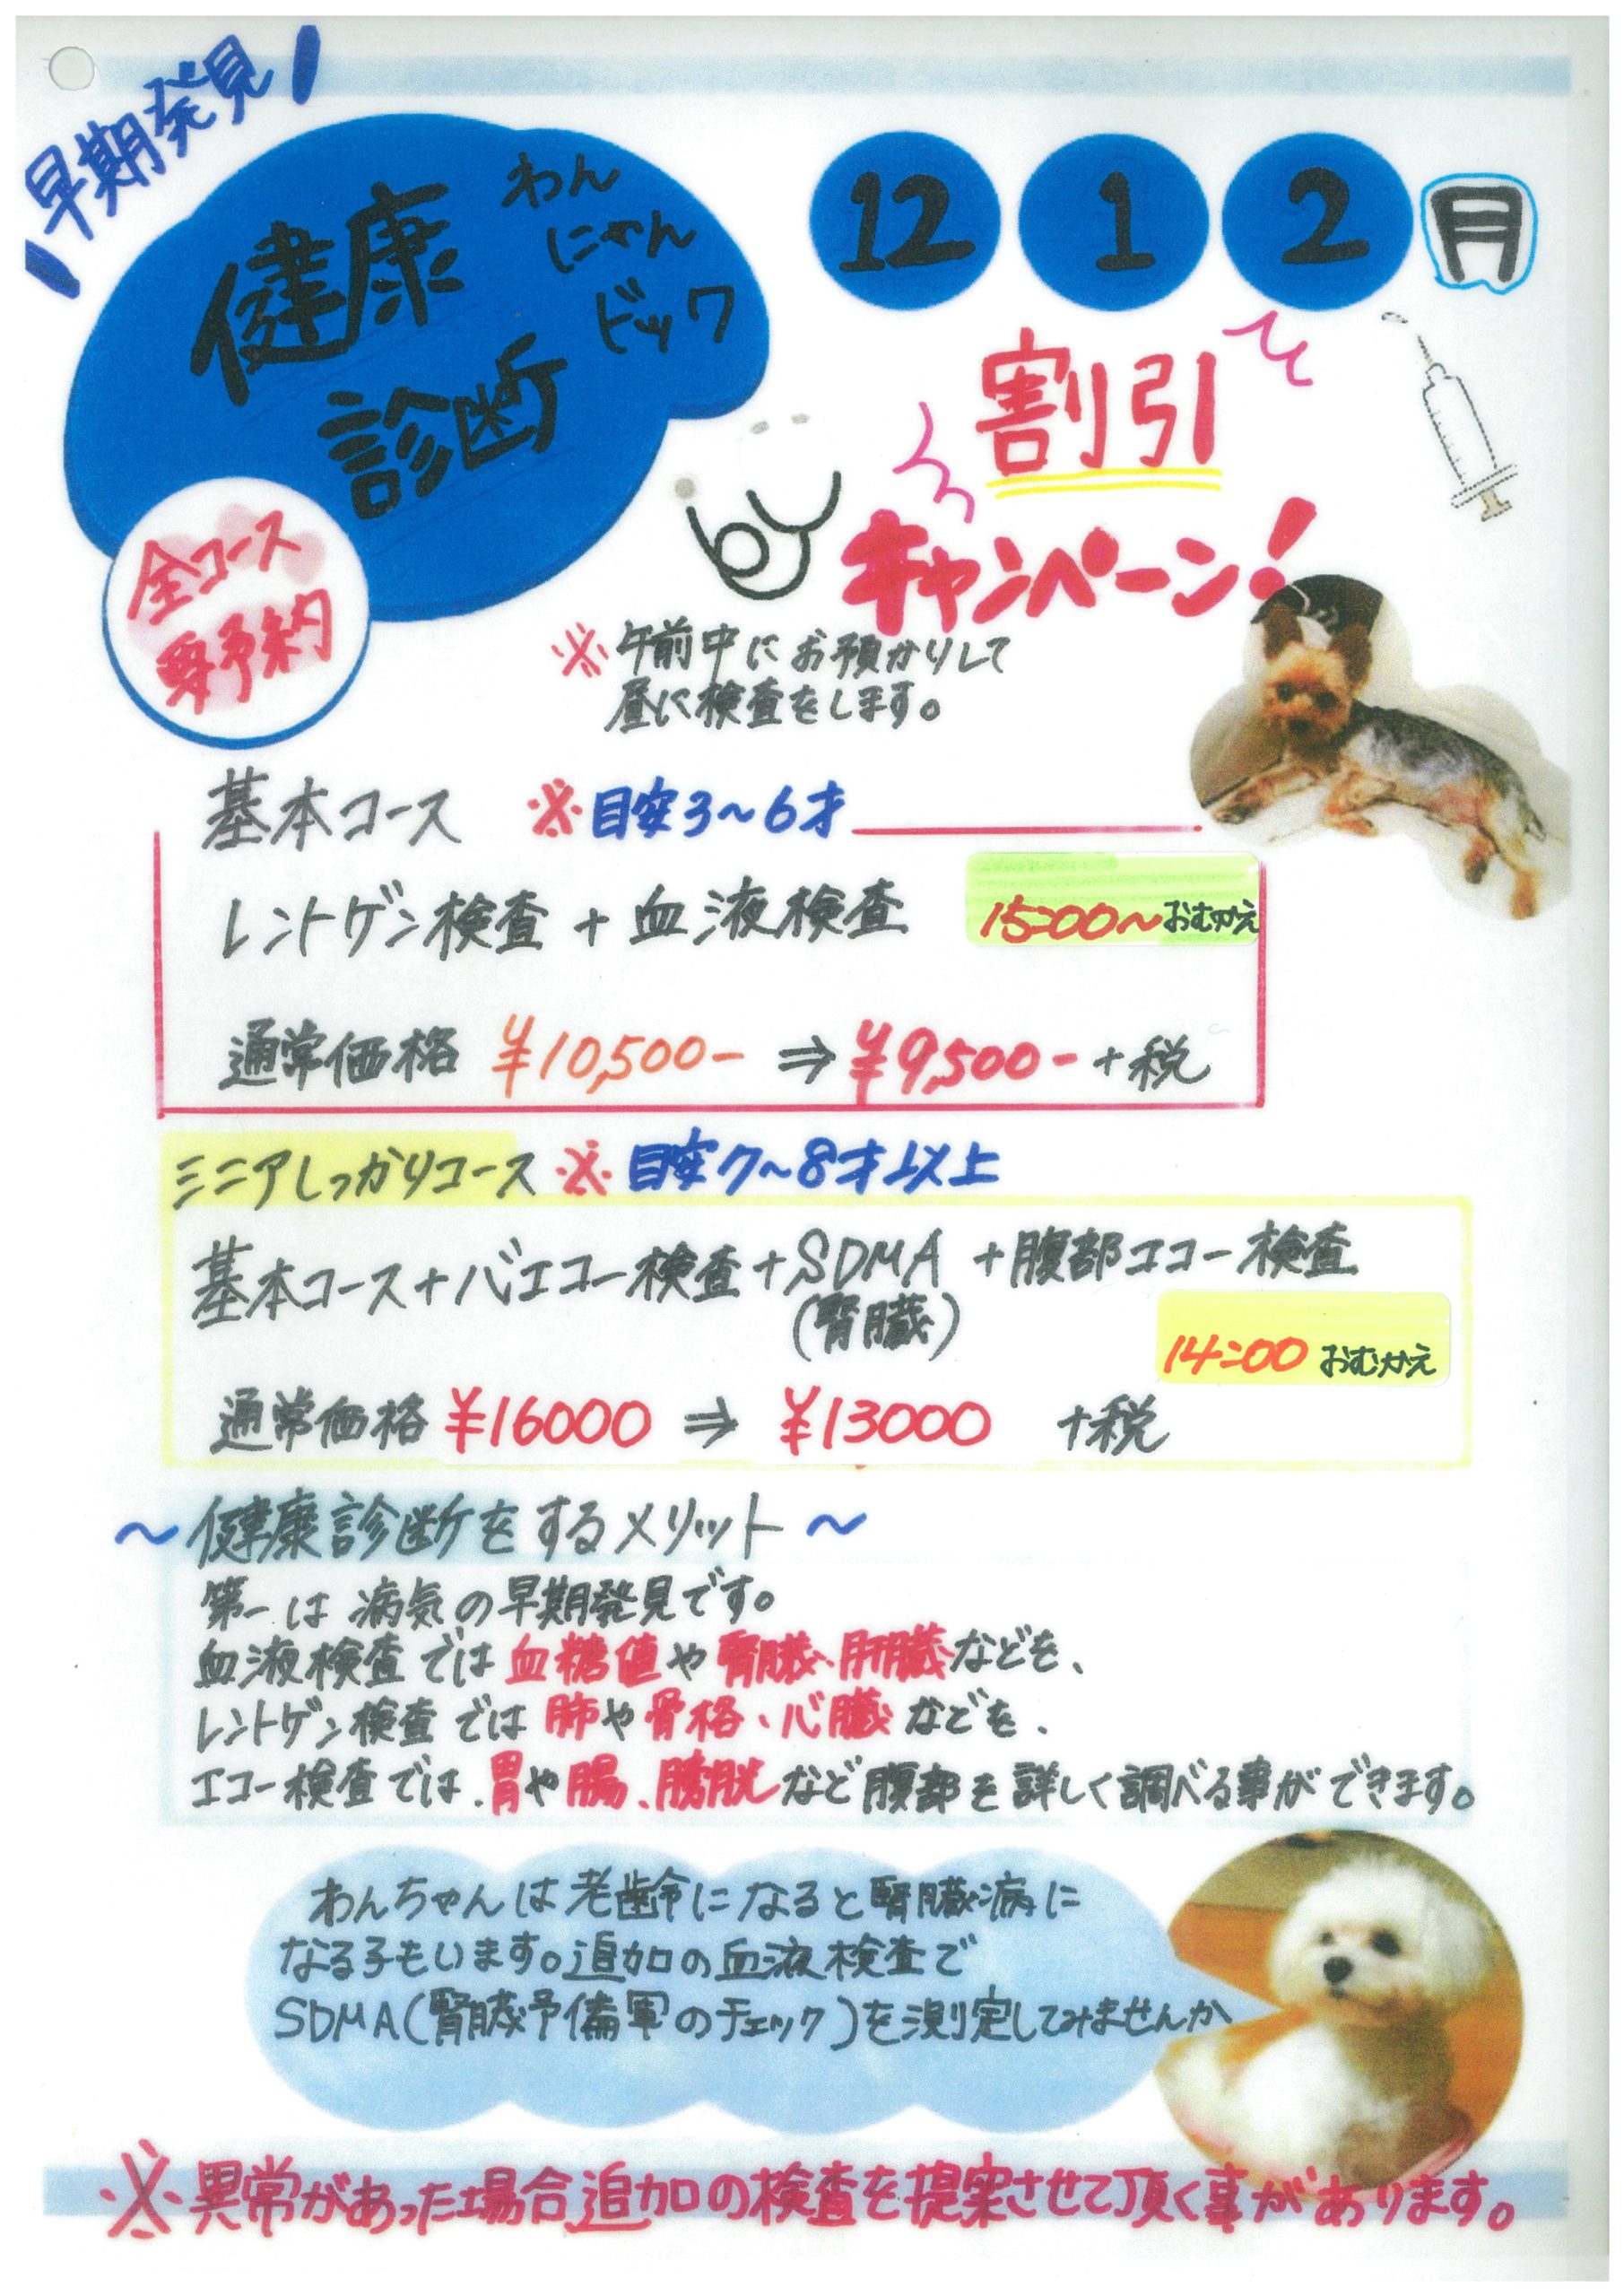 早期発見
健康
診断
わん
にゃん
ドック
12 1 2 月
割引
キャンペーン!
全コース
要予約
※午前中にお預かりして
昼に検査をします。
基本コース ※目安3~6才
レントゲン検査+血液検査 15:00~おむかえ
通常価格 ¥10,500- ⇒ ¥9,500- +税
ミニアしっかりコース ※目安7~8才以上
基本コース+心エコー検査+SDMA+腹部エコー検査
(腎臓)
14:00 おむかえ
通常価格 ¥16000 ⇒ ¥13000 +税
~健康診断をするメリット~
第一は病気の早期発見です。
血液検査では血糖値や腎臓、肝臓などを、
レントゲン検査では肺や骨格、心臓などを、
エコー検査では、胃や腸、膀胱など腹部を詳しく調べる事ができます。
わんちゃんは老齢になると腎臓病に
なる子もいます。追加の血液検査で
SDMA(腎臓予備軍のチェック)を測定してみませんか
※異常があった場合追加の検査を提案させて頂く事があります。